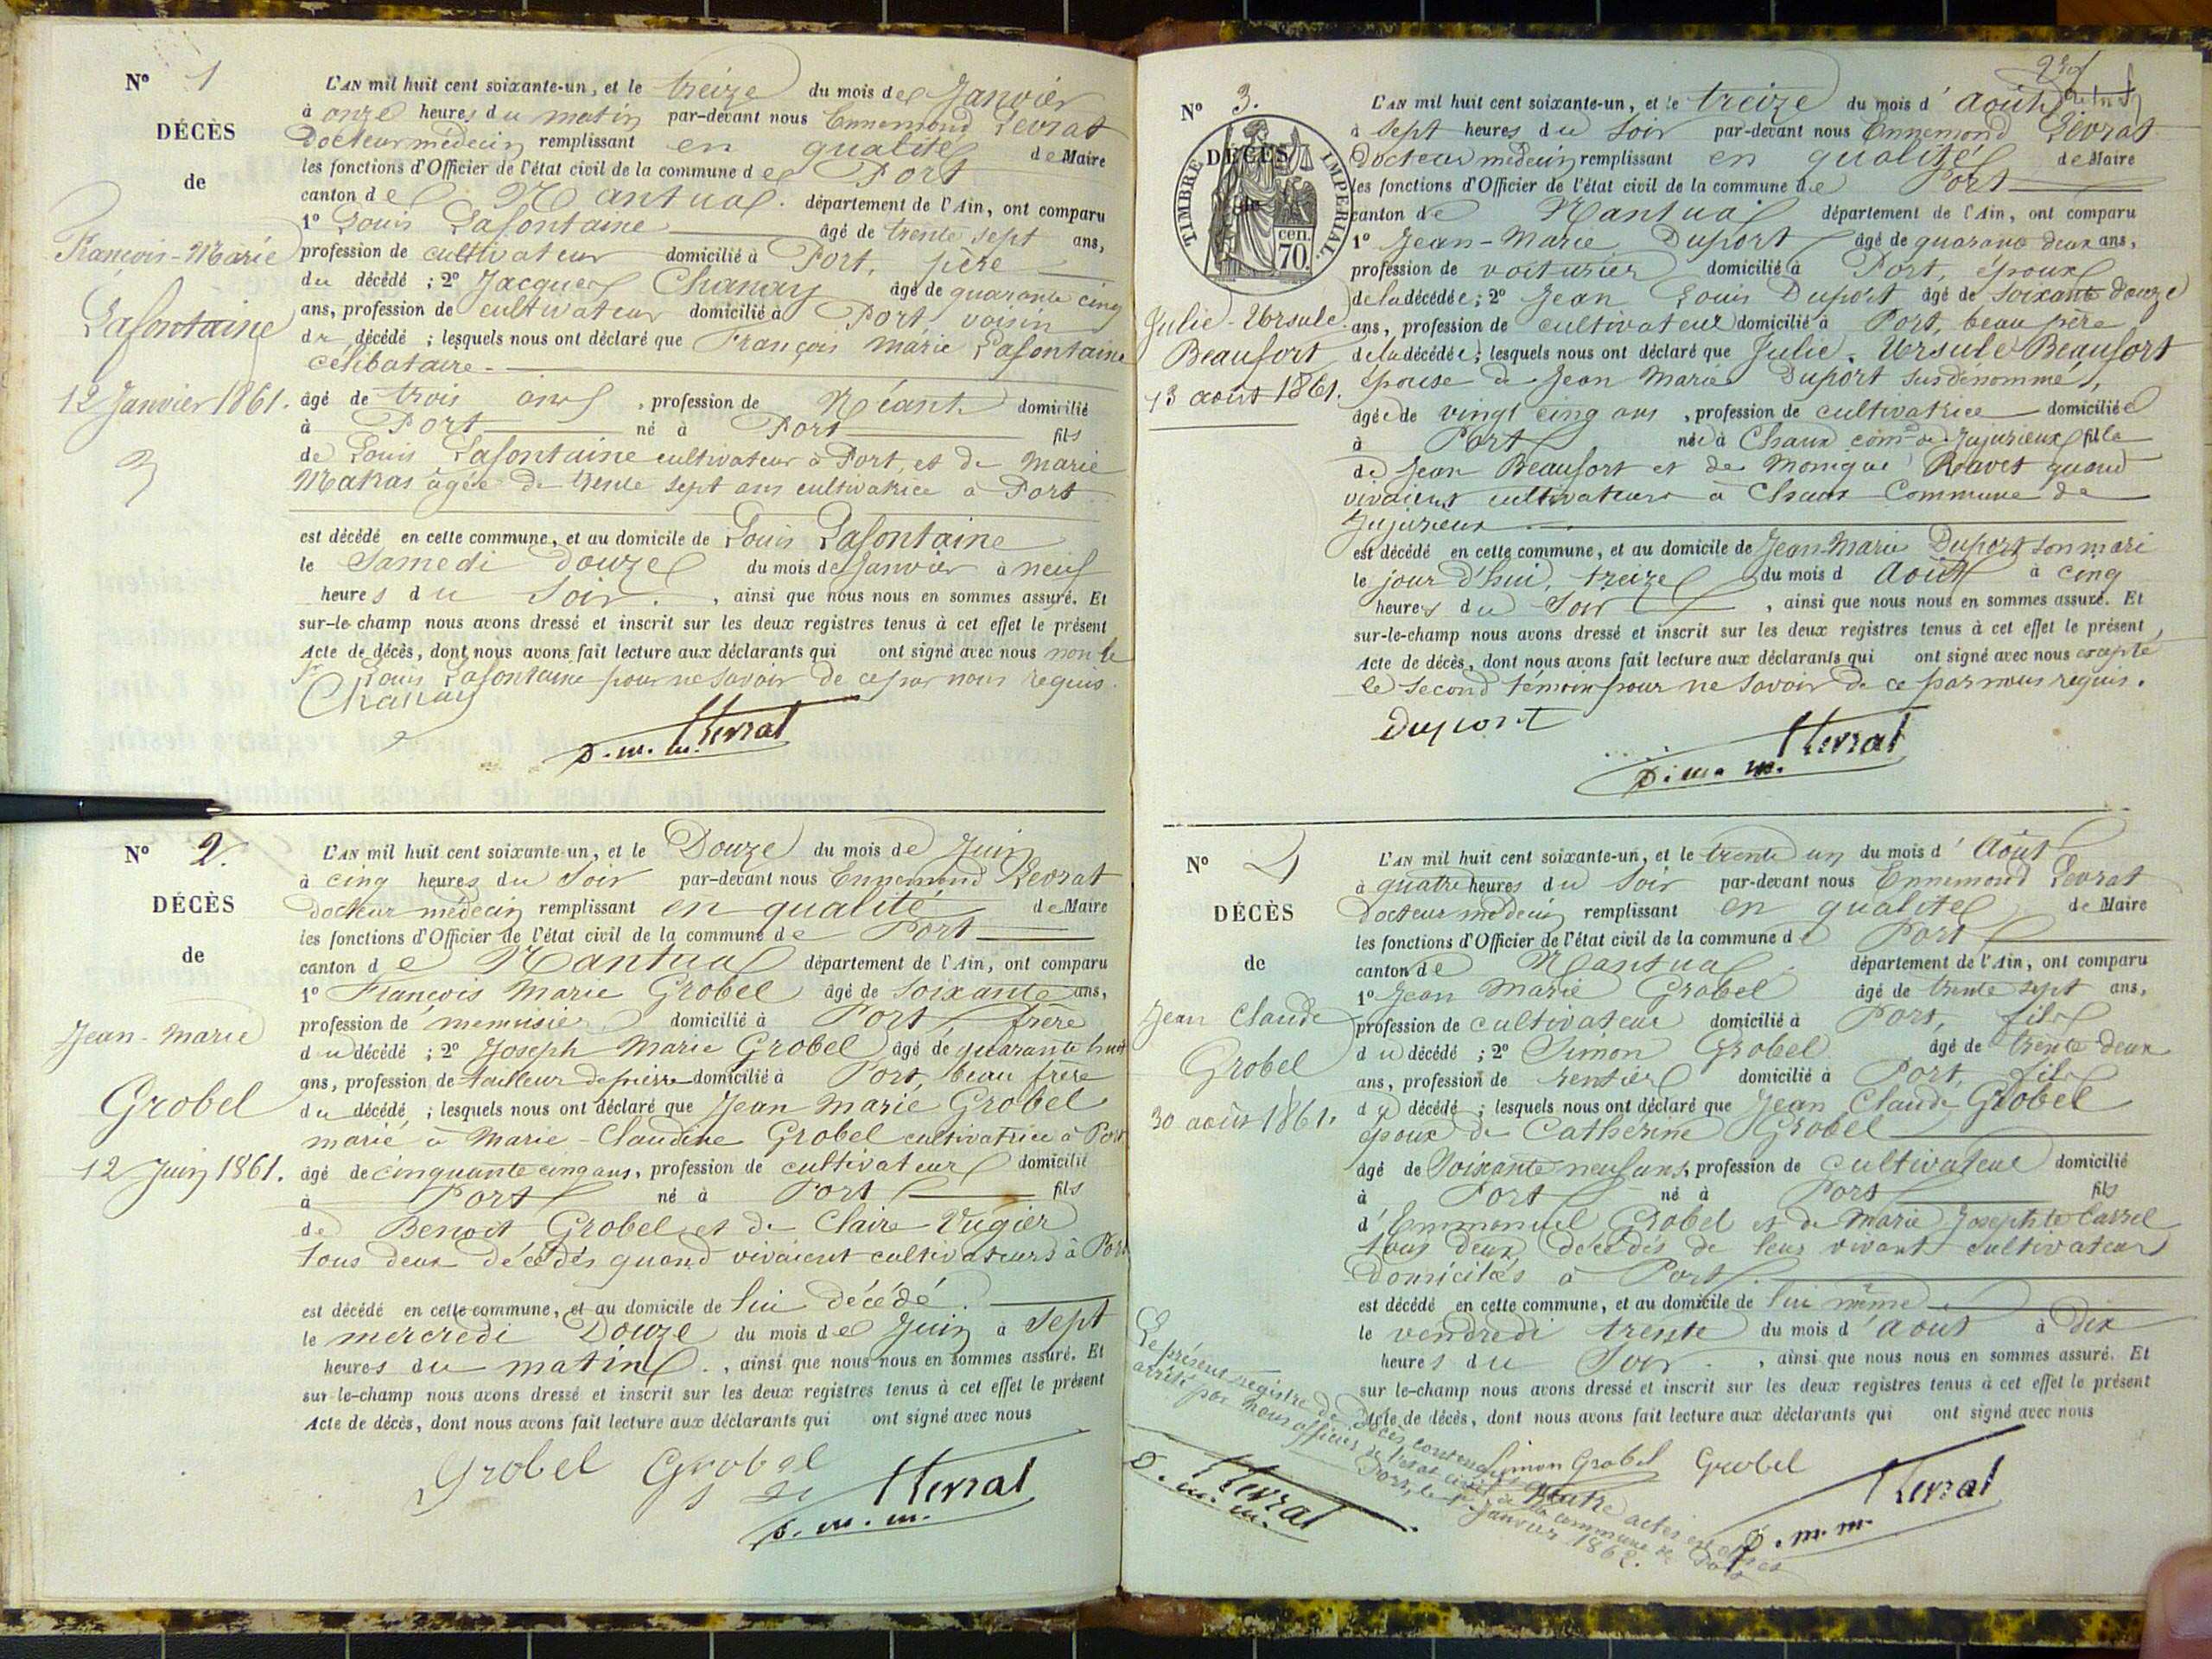 N° 1
DÉCÈS
de
François-Marie
Lafontaine
12 Janvier 1861.
3
L'AN mil huit cent soixante-un, et le treize du mois de Janvier
à onze heures du matin par-devant nous Ennemond Levrat
Docteur médecin remplissant en qualité de Maire
les fonctions d'Officier de l'état civil de la commune de Port
canton de Nantua. département de l'Ain, ont comparu
1° Louis Lafontaine âgé de trente sept ans,
profession de cultivateur domicilié à Port, père
du décédé ; 2° Jacques Chanay âgé de quarante cinq
ans, profession de cultivateur domicilié à Port voisin
du décédé ; lesquels nous ont déclaré que François marie Lafontaine
célibataire.
âgé de trois ans , profession de Néant domicilié
à Port né à Port fils
de Louis Lafontaine cultivateur à Port, et de Marie
Matras âgée de trente sept ans cultivatrice à Port
est décédé en cette commune, et au domicile de Louis Lafontaine
le Samedi douze du mois de Janvier à neuf
heures du Soir. , ainsi que nous nous en sommes assuré. Et
sur-le-champ nous avons dressé et inscrit sur les deux registres tenus à cet effet le présent
Acte de décès, dont nous avons fait lecture aux déclarants qui ont signé avec nous non le
Sr Louis Lafontaine pour ne savoir de ce par nous requis.
Chanay
Levrat
d. m. m.
N° 2.
DÉCÈS
de
Jean-Marie
Grobel
12 Juin 1861.
L'AN mil huit cent soixante-un, et le Douze du mois de Juin
à cinq heures du Soir par-devant nous Ennemond Levrat
Docteur médecin remplissant en qualité de Maire
les fonctions d'Officier de l'état civil de la commune de Port
canton de Nantua département de l'Ain, ont comparu
1° François Marie Grobel âgé de Soixante ans,
profession de menuisier domicilié à Port frère
du décédé ; 2° Joseph Marie Grobel âgé de quarante huit
ans, profession de tailleur de pierre domicilié à Port, beau frère
du décédé ; lesquels nous ont déclaré que Jean Marie Grobel
marié à Marie-Claudine Grobel cultivatrice à Port
âgé de cinquante cinq ans, profession de cultivateur domicilié
à Port né à Port fils
de Benoit Grobel et de Claire Vugier
tous deux décédés quand vivaient cultivateurs à Port
est décédé en cette commune, et au domicile de lui décédé.
le mercredi Douze du mois de Juin à Sept
heures du matin. , ainsi que nous nous en sommes assuré. Et
sur-le-champ nous avons dressé et inscrit sur les deux registres tenus à cet effet le présent
Acte de décès, dont nous avons fait lecture aux déclarants qui ont signé avec nous
Grobel Grobel
Levrat
d. m. m.
N° 3.
TIMBRE IMPÉRIAL
70 cen.
DÉCÈS
de
Julie-Ursule
Beaufort
13 août 1861.
L'AN mil huit cent soixante-un, et le treize du mois d'août
à Sept heures du Soir par-devant nous Ennemond Levrat
Docteur médecin remplissant en qualité de Maire
les fonctions d'Officier de l'état civil de la commune de Port
canton de Nantua département de l'Ain, ont comparu
1° Jean-Marie Duport âgé de quarante deux ans,
profession de voiturier domicilié à Port, époux
de la décédée ; 2° Jean Louis Duport âgé de Soixante douze
ans, profession de cultivateur domicilié à Port, beau père
de la décédée ; lesquels nous ont déclaré que Julie. Ursule Beaufort
épouse de Jean Marie Duport susdénommé,
âgée de vingt cinq ans , profession de cultivatrice domiciliée
à Port née à Chaux comne de Jujurieux fille
de Jean Beaufort et de Monique Ravet quand
vivaient cultivateurs à Chaux Commune de
Jujurieux
est décédé en cette commune, et au domicile de Jean-Marie Duport son mari
le jour d'hui, treize du mois d'Août à cinq
heures du Soir , ainsi que nous nous en sommes assuré. Et
sur-le-champ nous avons dressé et inscrit sur les deux registres tenus à cet effet le présent
Acte de décès, dont nous avons fait lecture aux déclarants qui ont signé avec nous excepté
le second témoin pour ne savoir de ce par nous requis.
Duport
Levrat
d. m. m.
N° 4
DÉCÈS
de
Jean Claude
Grobel
30 août 1861.
L'AN mil huit cent soixante-un, et le trente un du mois d'Août
à quatre heures du Soir par-devant nous Ennemond Levrat
Docteur médecin remplissant en qualité de Maire
les fonctions d'Officier de l'état civil de la commune de Port
canton de Nantua. département de l'Ain, ont comparu
1° Jean Marie Grobel âgé de trente sept ans,
profession de cultivateur domicilié à Port, fils
du décédé ; 2° Simon Grobel âgé de trente deux
ans, profession de rentier domicilié à Port, fils
du décédé ; lesquels nous ont déclaré que Jean Claude Grobel
époux de Catherine Grobel
âgé de Soixante neuf ans, profession de Cultivateur domicilié
à Port né à Port fils
d'Emmanuel Grobel et de Marie Josephte Carrel
tous deux décédés de leur vivant cultivateurs
domiciliés à Port.
est décédé en cette commune, et au domicile de lui même
le vendredi trente du mois d'août à dix
heures du Soir. , ainsi que nous nous en sommes assuré. Et
sur-le-champ nous avons dressé et inscrit sur les deux registres tenus à cet effet le présent
Acte de décès, dont nous avons fait lecture aux déclarants qui ont signé avec nous
Simon Grobel Grobel
Levrat
d. m. m.
Le présent registre de Décès contenant quatre actes est clos et
arrêté par nous officier de l'état civil de la commune de Port
Port, le 1er Janvier 1862.
Levrat
d. m. m.